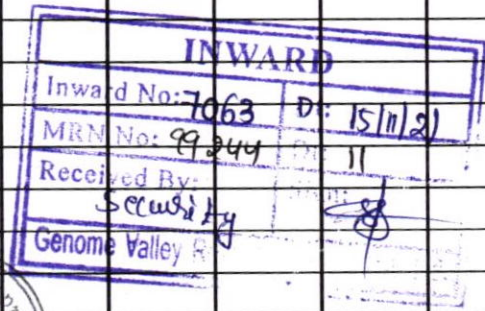 INWARD
Inward No: 7063 Dt: 15/11/21
MRN No: 99244 Dt: 11
Received By: Sign:
Security
Genome Valley R